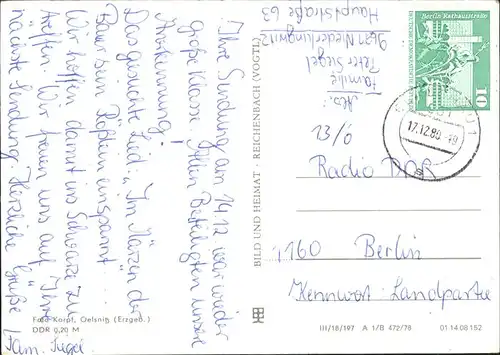 Ihre Sendung am 14.12. war wieder
große Klasse. Allen Beteiligten unsere
Anerkennung.
Das gesuchte Lied: „Im Märzen der
Bauer sein Rößlein einspannt..."
Wir hoffen damit ins Schwarze zu
treffen. Wir freuen uns auf Ihre
nächste Sendung. Herzliche Grüße
Fam. Siegel
Foto Karpf, Oelsnitz (Erzgeb.)
DDR 0,20 M
BILD UND HEIMAT · REICHENBACH (VOGTL)
Abs.
Familie
Peter Siegel
Hauptstraße 63
Berlin, Rathausstraße
DEUTSCHE DEMOKRATISCHE REPUBLIK
10
17.12.80
13/0
Radio DDR
1160 Berlin
Kennwort: Landpartie
III/18/197 A 1/B 472/78 01 14 08 152